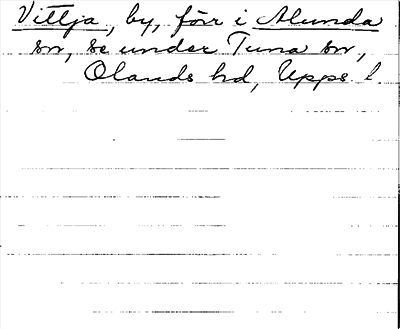 Vittja, by, förr i Alunda
sn, se under Tuna sn,
Olands hd, Upps. l.